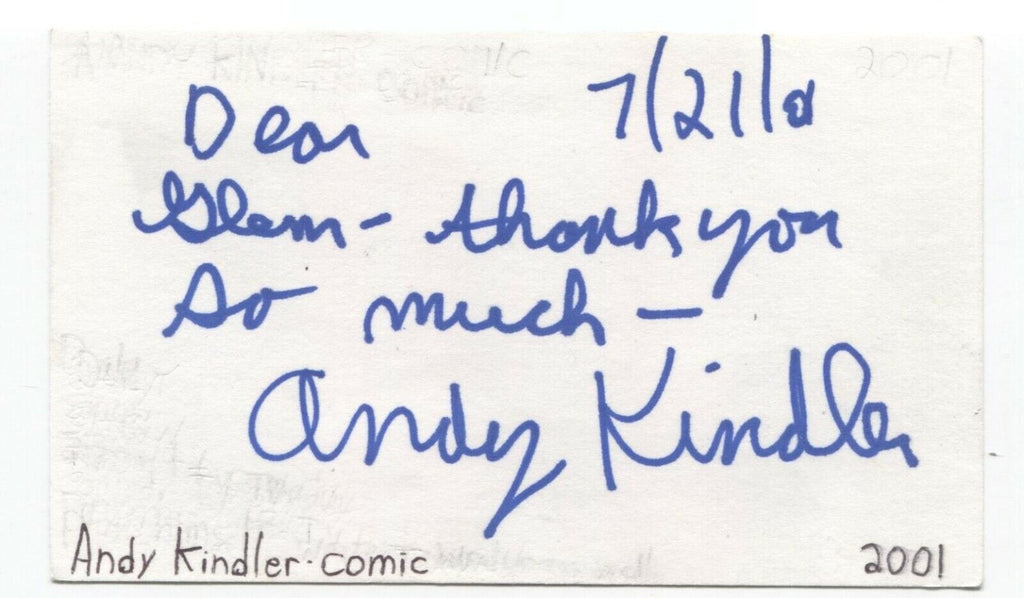 Dear 7/21/01
Glenn- thank you
so much -
Andy Kindler
Andy Kindler · comic 2001